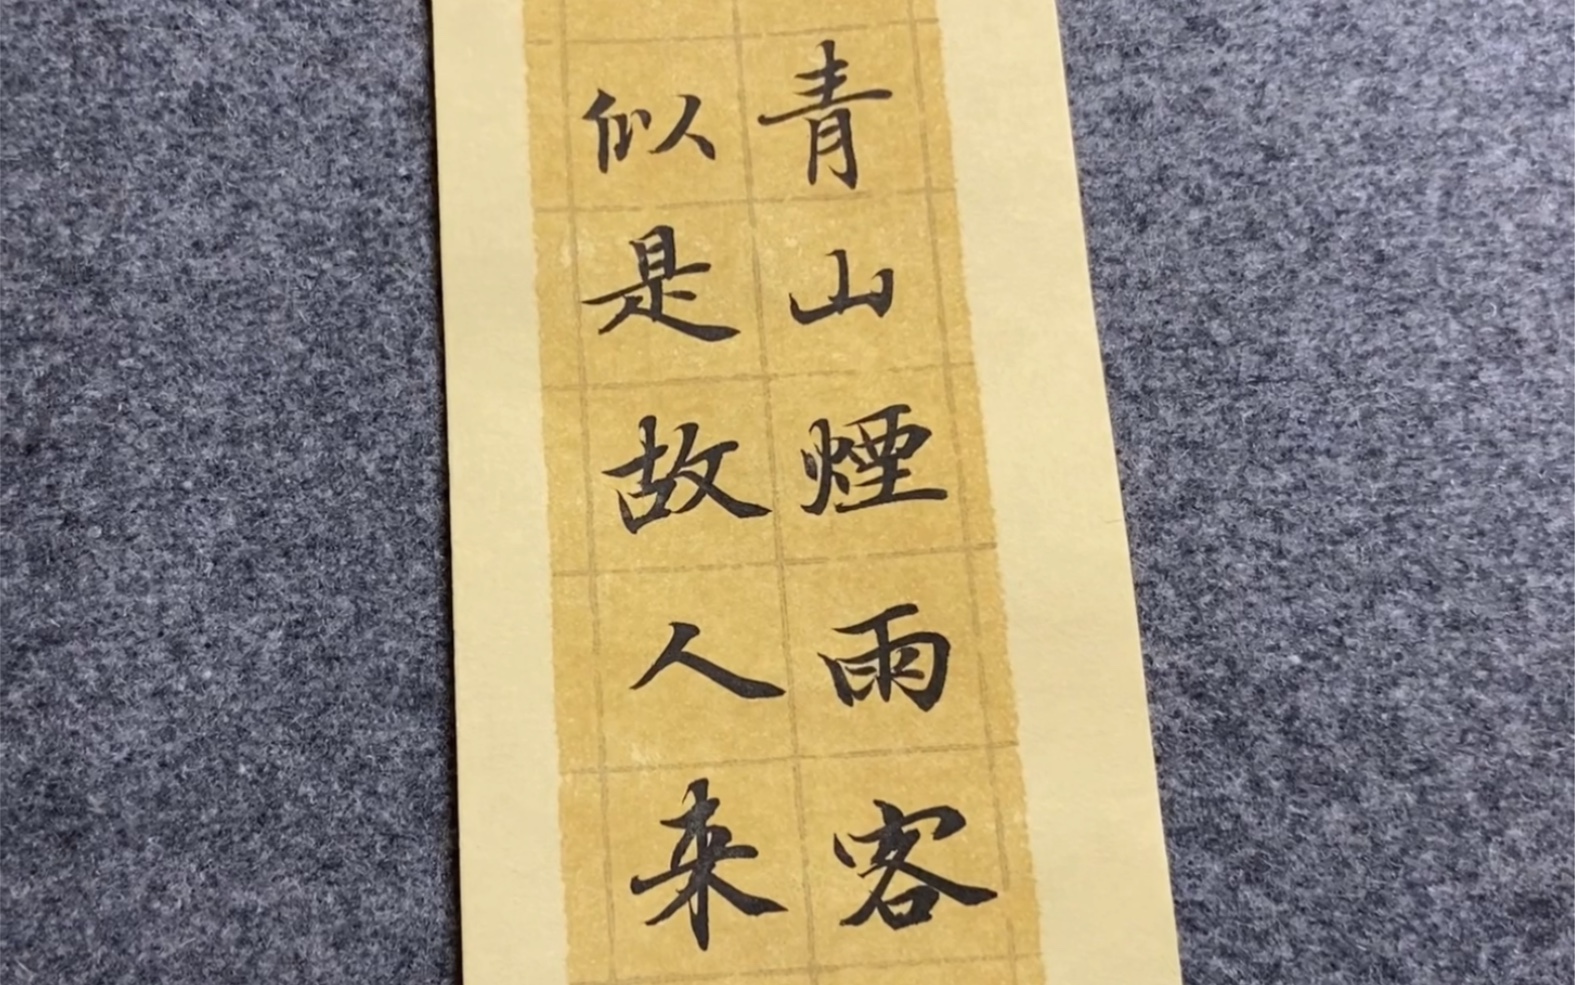 青山煙雨客
似是故人来